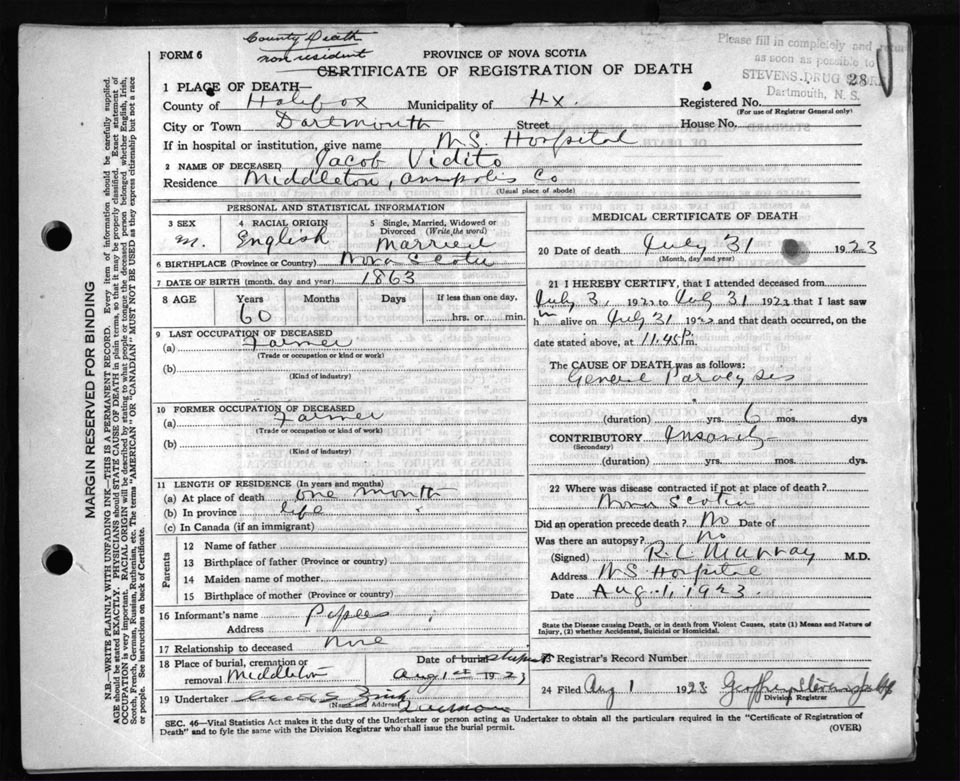 County Death
non resident
FORM 6
PROVINCE OF NOVA SCOTIA
CERTIFICATE OF REGISTRATION OF DEATH
Please fill in completely and
as soon as possible to
STEVENS DRUG
Dartmouth, N. S.
28
1 PLACE OF DEATH—
County of Halifax Municipality of Hx. Registered No.
(For use of Registrar General only)
City or Town Dartmouth Street House No.
If in hospital or institution, give name N.S. Hospital
2 NAME OF DECEASED Jacob Vidito
Residence Middleton, Annapolis Co
(Usual place of abode)
PERSONAL AND STATISTICAL INFORMATION
3 SEX 4 RACIAL ORIGIN 5 Single, Married, Widowed or
Divorced (Write the word)
M. English Married
6 BIRTHPLACE (Province or Country) Nova Scotia
7 DATE OF BIRTH (month, day and year) 1863
8 AGE Years Months Days If less than one day,
60 hrs. or min.
9 LAST OCCUPATION OF DECEASED
(a) Farmer
(Trade or occupation or kind or work)
(b)
(Kind of industry)
10 FORMER OCCUPATION OF DECEASED
(a) Farmer
(Trade or occupation or kind of work)
(b)
(Kind of industry)
11 LENGTH OF RESIDENCE (In years and months)
(a) At place of death one month
(b) In province life
(c) In Canada (if an immigrant)
Parents
12 Name of father
13 Birthplace of father (Province or country)
14 Maiden name of mother
15 Birthplace of mother (Province or Country)
16 Informant's name
Address
17 Relationship to deceased
18 Place of burial, cremation or
removal Middleton
Date of burial
Aug 1st 1923
19 Undertaker
(Name and Address)
MEDICAL CERTIFICATE OF DEATH
20 Date of death July 31 1923
(Month, day and year)
21 I HEREBY CERTIFY, that I attended deceased from
July 3, 192 to July 31 192 that I last saw
h m alive on July 31 192 and that death occurred, on the
date stated above, at 11.45 p. m.
The CAUSE OF DEATH was as follows:
General Paralysis
(duration) yrs. 6 mos. dys
CONTRIBUTORY Insanity
(Secondary)
(duration) yrs. mos. dys.
22 Where was disease contracted if not at place of death?
Nova Scotia
Did an operation precede death? No Date of
Was there an autopsy? No
(Signed) R. C. Murray M.D.
Address N.S. Hospital
Date Aug. 1, 1923.
State the Disease causing Death, or in death from Violent Causes, state (1) Means and Nature of
Injury, (2) whether Accidental, Suicidal or Homicidal.
Registrar's Record Number
24 Filed Aug 1 1923
Division Registrar
SEC. 46—Vital Statistics Act makes it the duty of the Undertaker or person acting as Undertaker to obtain all the particulars required in the "Certificate of Registration of
Death" and to fyle the same with the Division Registrar who shall issue the burial permit.
(OVER)
MARGIN RESERVED FOR BINDING
N.B.—WRITE PLAINLY WITH UNFADING INK—THIS IS A PERMANENT RECORD. Every item of information should be carefully supplied.
AGE should be stated EXACTLY. PHYSICIANS should STATE CAUSE OF DEATH in plain terms, so that it may be properly classified. Exact statement of
OCCUPATION is very important. RACIAL ORIGIN will be described by stating to what people or tongue the deceased person belonged whether English, Irish,
Scotch, French, German, Russian, Ruthenian, etc. The terms "AMERICAN" OR "CANADIAN" MUST NOT BE USED as they express citizenship but not a race
or people. See instructions on back of Certificate.